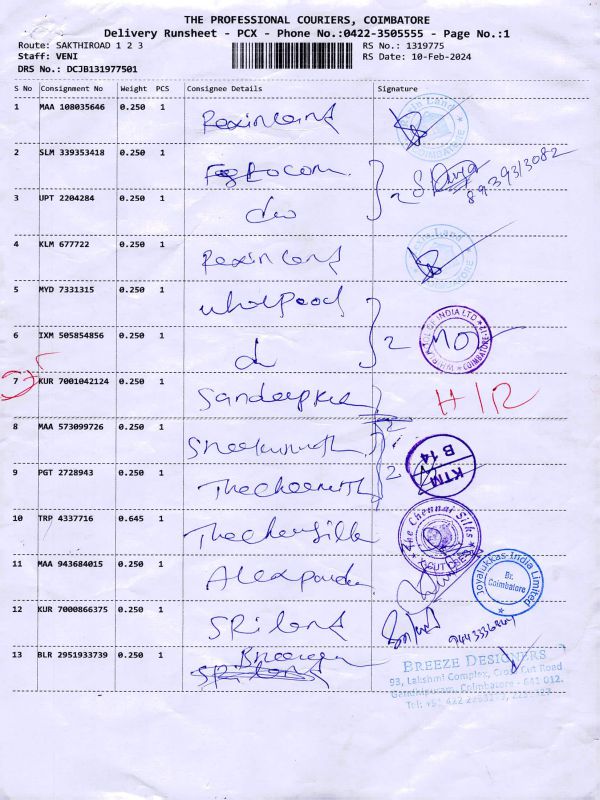 THE PROFESSIONAL COURIERS, COIMBATORE
Delivery Runsheet - PCX - Phone No.:0422-3505555 - Page No.:1
Route: SAKTHIROAD 1 2 3
RS No.: 1319775
Staff: VENI
RS Date: 10-Feb-2024
DRS No.: DCJB131977501
S No Consignment No Weight PCS Consignee Details Signature
1 MAA 108035646 0.250 1 Rexinland
2 SLM 339353418 0.250 1
3 UPT 2204284 0.250 1 do 2 8939313082
4 KLM 677722 0.250 1 Rexinland
5 MYD 7331315 0.250 1 wholpool
6 IXM 505854856 0.250 1 d 2
WHIRLPOOL OF INDIA LTD COIMBATORE-12
7 KUR 7001042124 0.250 1 H/R
8 MAA 573099726 0.250 1
9 PGT 2728943 0.250 1 2
KTM B 14
10 TRP 4337716 0.645 1 The Chensilk
The Chennai Silks
11 MAA 943684015 0.250 1
Joyalukkas India Limited
Br. Coimbatore
12 KUR 7000866375 0.250 1 SRiland
13 BLR 2951933739 0.250 1
BREEZE DESIGNERS
93, Lakshmi Complex, Cross Cut Road
Gandhipuram, Coimbatore - 641 012.